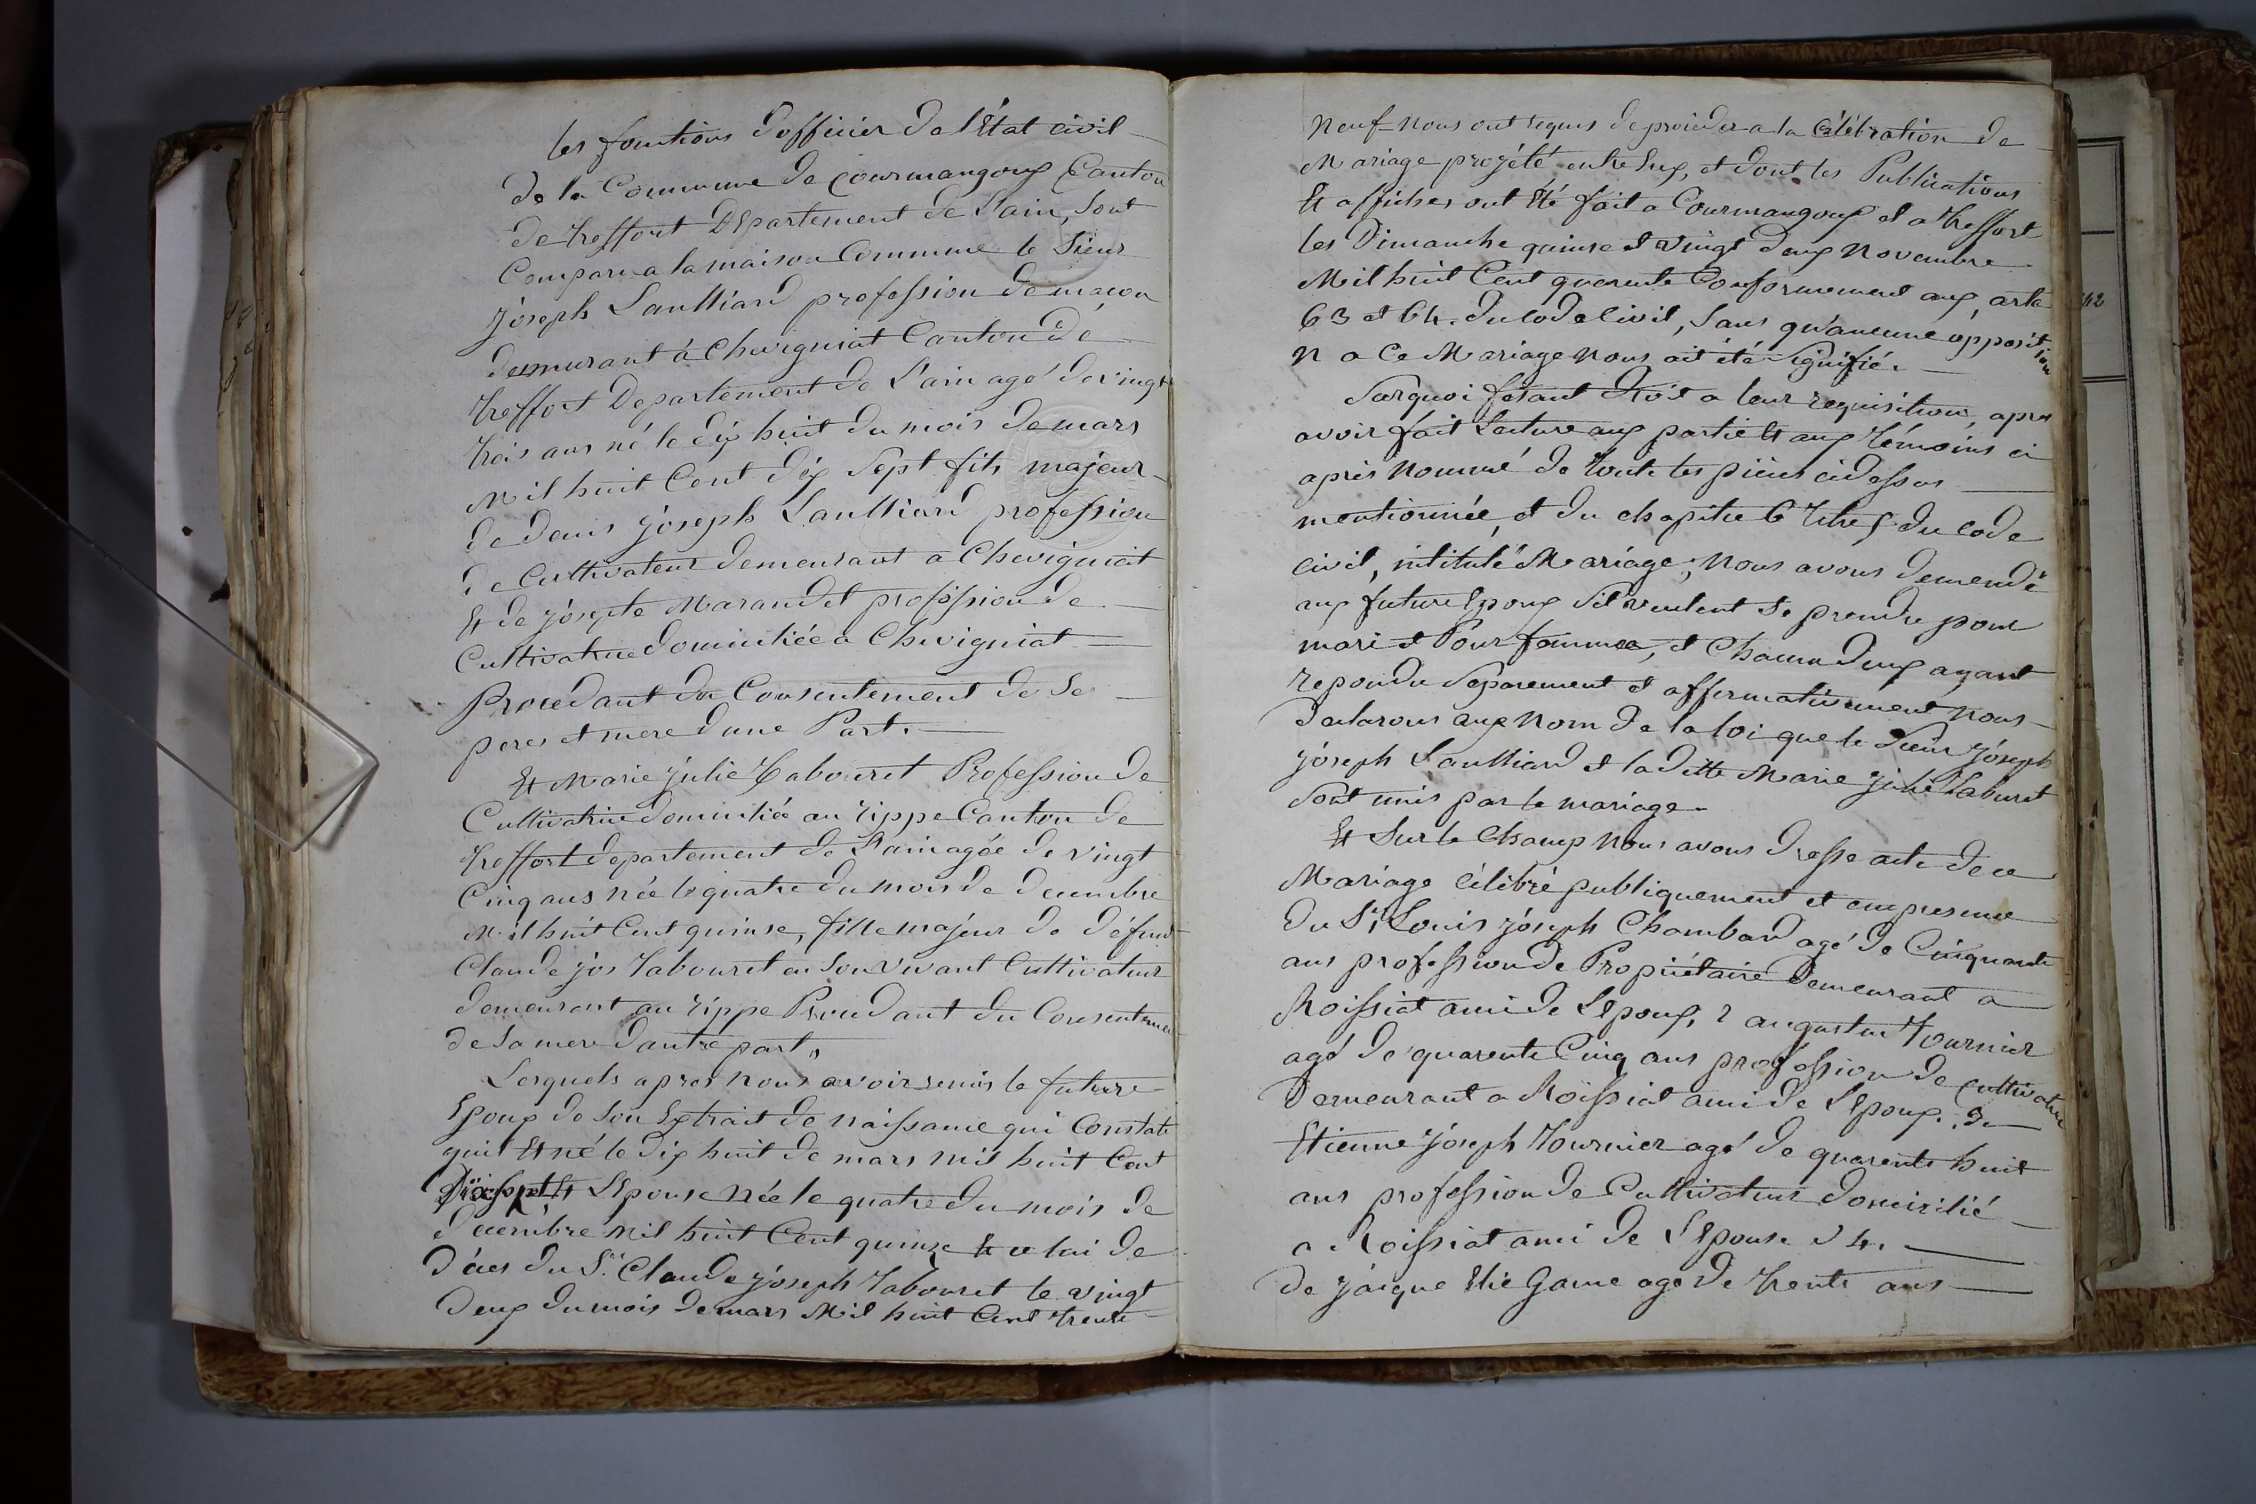 les fonctions d'officier de l'État civil
de la Commune de Courmangoux Canton
de treffort DEpartement de L'ain, Sont
Comparu a la maison Commune le Sieur
jóseph Laulliard profession de maçon
demurant à Chevigniat Canton de
treffort Departement de L'ain agé de vingt
trois ans né le dix huit du mois de mars
Mil huit Cent dix Sept fils majeur
de denis jóseph Laulliard profession
de Cultivateur demeurant a Chevigniat
Et de jósepte Marandet profession de
Cultivatrice domiciliée a Chevigniat
Procedant du Consentement de Se
peres et mere d'une Part.
Et Marie julie Tabouret Profession de
Cultivatrice domiciliée au rippe Canton de
treffort departement de L'ain agée de vingt
Cinq ans née le quatre du mois de decembre
Mil huit Cent quinse, fille majeur de défunt
Claude jos Tabouret en Son vivant Cultivateur
demeurant au rippe Procedant du Consentemen
de Sa mere d'autre part,
Lesquels apres nous avoir remis le future
Epoux de Son Extrait de naissance qui Constate
quil Et né le dix huit de mars mil huit Cent
dixsept Et L'Epouse née le quatre du mois de
decembre mil huit Cent quinse Et celui de
déces du Sr. Claude jóseph Tabouret le vingt
deux du mois de mars Mil huit Cent trente
neuf nous ont requis de proceder a la Célébration de
Mariage projété entre Eux, et dont les Publications
Et affiches ont Eté fait a Courmangoux et a treffort
les Dimanche quinse et vingt deux novembre
Mil huit Cent quarente Conformement aux arte
63 et 64. du code Civil, Sans qu'aucune opposit
n a Ce Mariage nous ait été Signifié.
ion
Surquoi fesant droit a leur requisition, apres
avoir fait Lecture aux partie Et aux témoins ci
après nommé de toute les pièces cidessus
mentionnée, et du chapitre 6 titre 5 du code
civil, intitulé Mariage, nous avons demendé
aux future Epoux S'il veulent Se prendre pour
mari et Pour femme, et Chacun d'eux ayant
repondu Separement et affirmativement nous
declarons aux nom de la loi que le Sieur jóseph
jóseph Laulliard et la ditte Marie julie Taburet
Sont unis par le mariage.
Et Sur le Champ nous avons dresse acte de ce
Mariage Célébré publiquement et en presence
du Sr. Louis jóseph Chambard agé de Cinquante
ans profession de Propriétaire demeurant a
Roissiat ami de L'Epoux, 2 augustin tournier
agé de quarente Cinq ans profession de Cultivateur
Demeurant a Roissiat ami de L'Epoux. 3e
Etienne jóseph tournier agé de quarente huit
ans profession de Cultivateur domicilié
a Roissiat ami de L'Epouse et 4.
de jàcque Elie Game age de trente ans